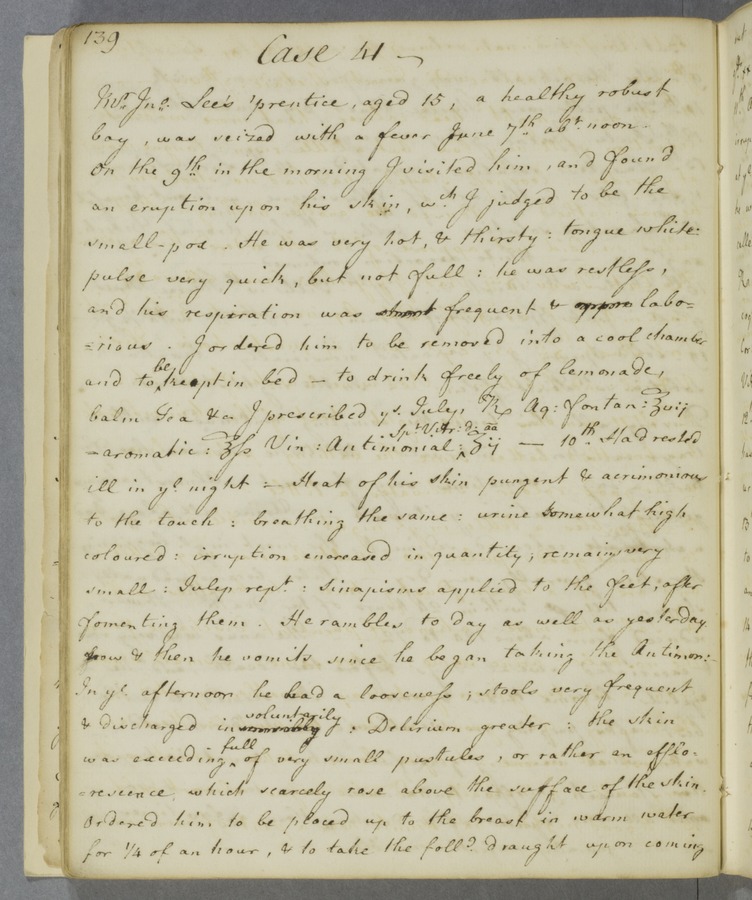 139
Case 41 —
Mr. Jno. Lee's 'prentice, aged 15, a healthy robust
boy, was seized with a fever June 7th abt. noon.
On the 9th in the morning I visited him, and found
an eruption upon his skin, wch I judged to be the
small-pox. He was very hot, & thirsty: tongue white:
pulse very quick, but not full: he was restless,
and his respiration was short frequent & labo=
=rious. I ordered him to be removed into a cool chamber
and to be kept in bed — to drink freely of lemonade,
balm Tea &c I prescribed ys. Julep. ℞ Aq: fontan: ℥
-aromatic: ℥ſs Vin: Antimonial: Spt. Vitr: d: aa ʒij — 10th. Had rested
ill in ye. night = Heat of his skin pungent & acrimonious
to the touch: breathing the same: urine somewhat high
coloured: irruption encreased in quantity; remains very
small: Julep rept.: Sinapisms applied to the feet, after
fomenting them. He rambles to day as well as yesterday.
Now & then he vomits since he began taking the Antimon:
In ye. afternoon he had a looseness; stools very frequent
& discharged involuntarily: Delirium greater: the skin
was exceeding full of very small pustules, or rather an efflo-
-rescence, which scarcely rose above the surface of the skin.
Ordered him to be placed up to the breast in warm water
for 1/4 of an hour, & to take the follg. draught upon coming